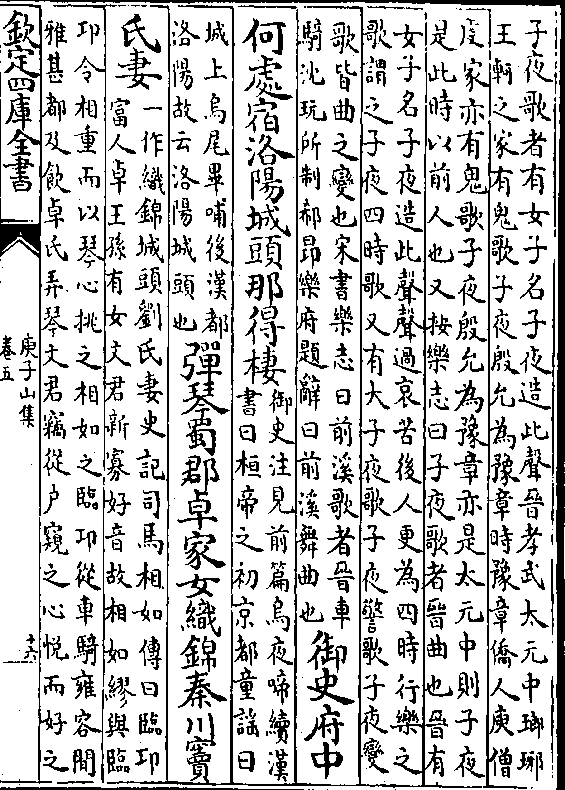 子夜歌者有女子名子夜造此聲晉孝武太元中瑯琊
王軒之家有鬼歌子夜殷允為豫章時豫章僑人庾僧
度家亦有鬼歌子夜殷允為豫章亦是太元中則子夜
是此時以前人也又按樂志曰子夜歌者晉曲也晉有
女子名子夜造此聲聲過哀苦後人更為四時行樂之
歌謂之子夜四時歌又有大子夜歌子夜警歌子夜變
歌皆曲之變也宋書樂志曰前溪歌者晉車
騎沈玩所制郗昂樂府題辭曰前溪舞曲也
御史府中
何處宿洛陽城頭那得棲
御史注見前篇烏夜啼續漢
書曰桓帝之初京都童謡曰
城上烏尾畢哺後漢都
洛陽故云洛陽城頭也
彈琴蜀郡卓家女織錦秦川竇
氏妻
一作織錦城頭劉氏妻史記司馬相如傳曰臨邛
富人卓王孫有女文君新寡好音故相如繆與臨
邛令相重而以琴心挑之相如之臨邛從車騎雍容間
雅甚都及飲卓氏弄琴文君竊從户窺之心悦而好之
欽定四庫全書
庾子山集
卷五
十六